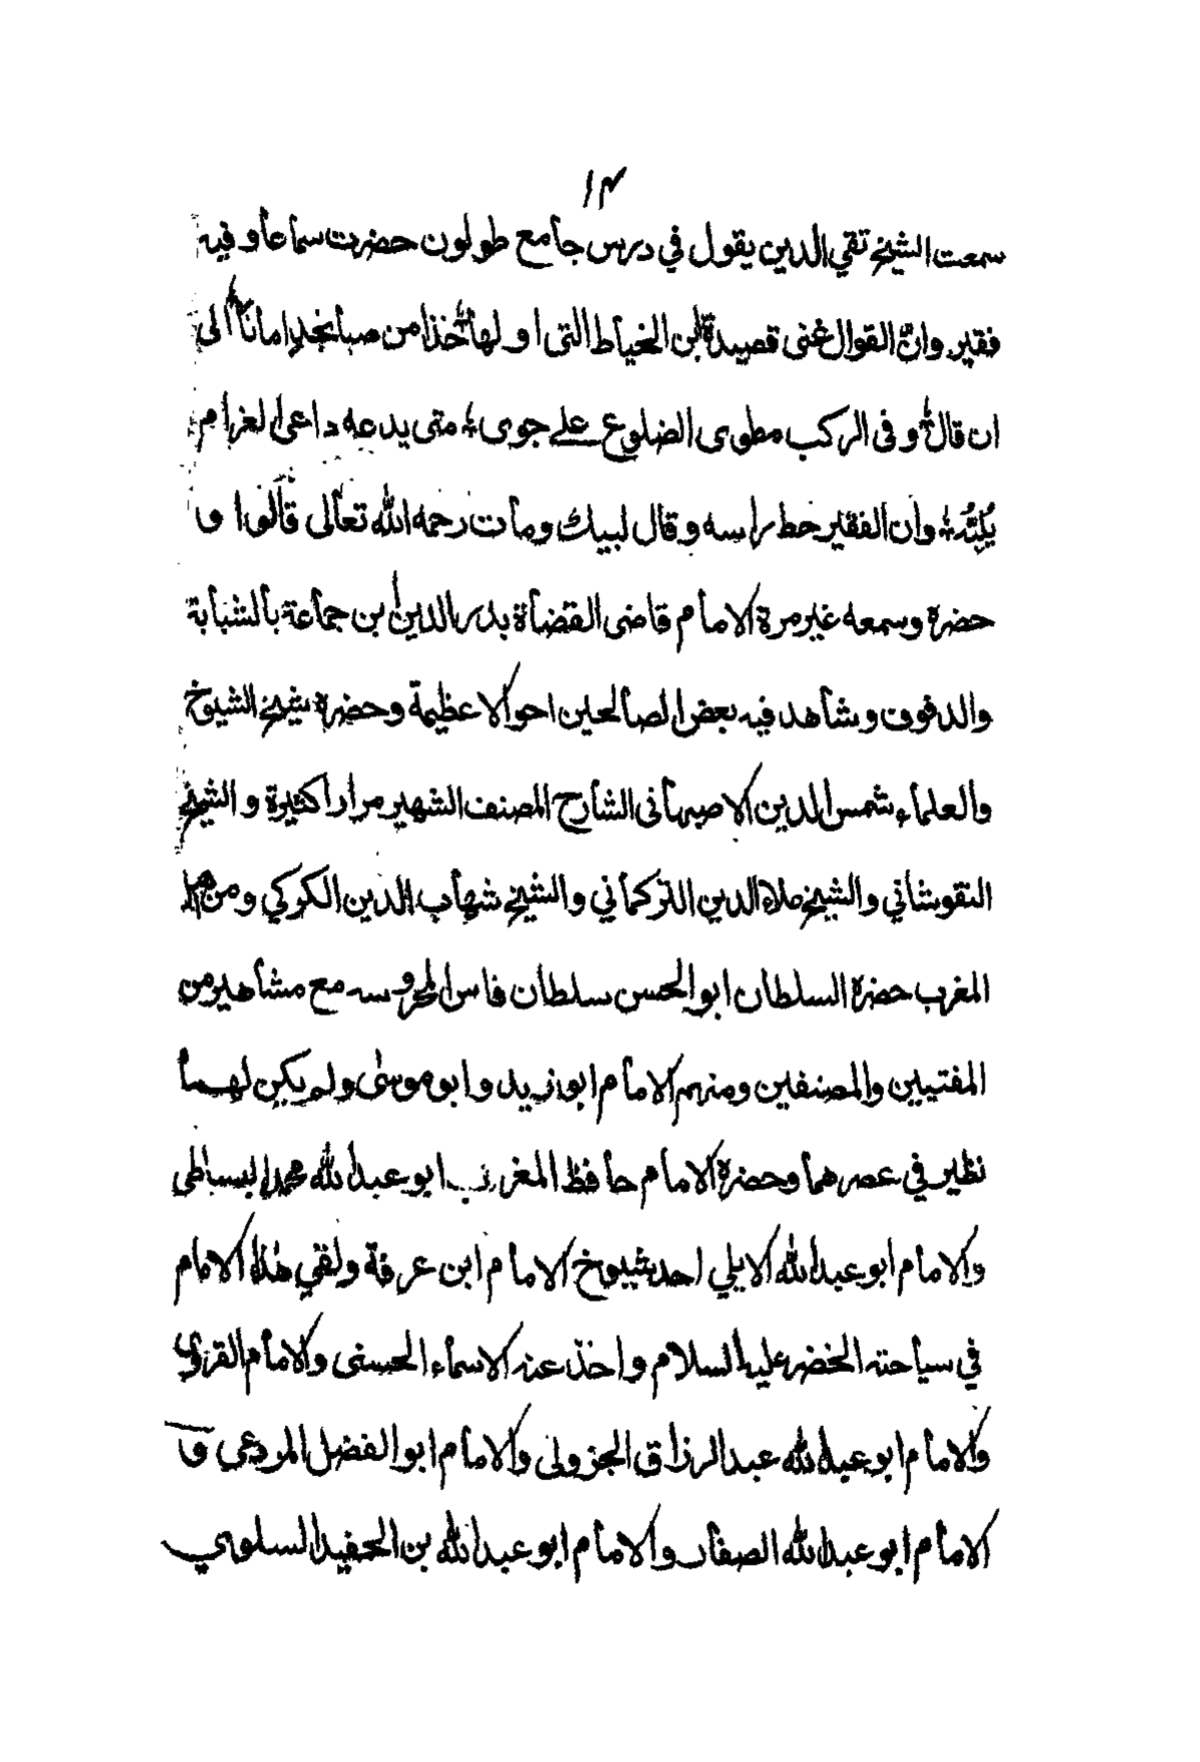 ١٣
سمعت الشيخ تقي الدين يقول في درس جامع طولون حضرت سماعا وفيه
فقير وان القوال غنى قصيدة ابن الخياط التى اولها خذا من صبا نجد امانا الى
ان قال وفى الركب مطوى الضلوع على جوى متى يدعه داعى الغرام
يلبّه وان الفقير حط راسه وقال لبيك ومات رحمه الله تعالى قالوا و
حضره وسمعه غير مرة الامام قاضى القضاة بدر الدين ابن جماعة بالشبابة
والدفوف وشاهد فيه بعض الصالحين احوالا عظيمة وحضره شيخ الشيوخ
والعلماء شمس الدين الاصبهانى الشارح المصنف الشهير مرارا كثيرة والشيخ
النقوشاني والشيخ علاء الدين التركماني والشيخ شهاب الدين الكركي ومن
المغرب حضره السلطان ابو الحسن سلطان فاس المحروسه مع مشاهير من
المفتيين والمصنفين ومنهم الامام ابو زيد وابو موسى ولم يكن لهما
نظير في عصرهما وحضره الامام حافظ المغرب ابو عبد الله محمد البساطى
والامام ابو عبد الله الايلي احد شيوخ الامام ابن عرفة ولقي هذا الامام
في سياحته الخضر عليه السلام واخذ عنه الاسماء الحسنى والامام القزوي
والامام ابو عبد الله عبد الرزاق الجزولى والامام ابو الفضل المردعي و
الامام ابو عبد الله الصفار والامام ابو عبد الله بن الحفيد السلوي